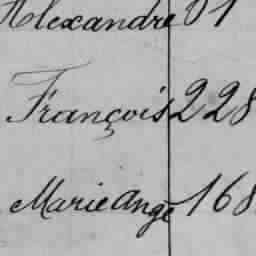 Alexandre 01
François 228
Marie ange 168